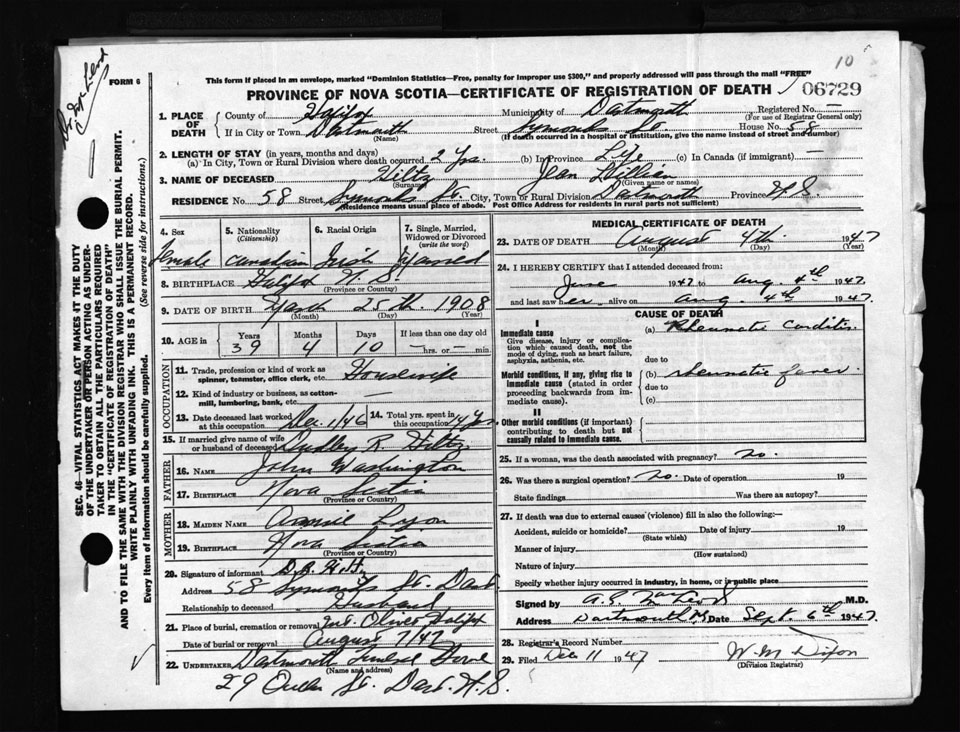 10
FORM 6
This form if placed in an envelope, marked "Dominion Statistics—Free, penalty for improper use $300," and properly addressed will pass through the mail "FREE"
PROVINCE OF NOVA SCOTIA—CERTIFICATE OF REGISTRATION OF DEATH 06729
SEC. 46—VITAL STATISTICS ACT MAKES IT THE DUTY
OF THE UNDERTAKER OR PERSON ACTING AS UNDER-
TAKER TO OBTAIN ALL THE PARTICULARS REQUIRED
IN THE "CERTIFICATE OF REGISTRATION OF DEATH"
AND TO FILE THE SAME WITH THE DIVISION REGISTRAR WHO SHALL ISSUE THE BURIAL PERMIT.
WRITE PLAINLY WITH UNFADING INK. THIS IS A PERMANENT RECORD.
Every item of information should be carefully supplied. (See reverse side for instructions.)
1. PLACE OF DEATH County of Halifax Municipality of Dartmouth Registered No. —
(For use of Registrar General only)
If in City or Town Dartmouth Street Symonds St. House No. 58
(Name) (If death occurred in a hospital or institution, give the name instead of street and number)
2. LENGTH OF STAY (in years, months and days)
(a) In City, Town or Rural Division where death occurred 2 Yrs. (b) In Province Life (c) In Canada (if immigrant) —
3. NAME OF DECEASED Hiltz Jean Lillian
(Surname) (Given name or names)
RESIDENCE No. 58 Street Symonds St. City, Town or Rural Division Dartmouth Province N.S.
(Residence means usual place of abode. Post Office Address for residents in rural parts not sufficient)
4. Sex 5. Nationality (Citizenship) 6. Racial Origin 7. Single, Married, Widowed or Divorced (write the word)
female Canadian Irish Married
8. BIRTHPLACE Halifax N.S.
(Province or Country)
9. DATE OF BIRTH March 25th 1908
(Month) (Day) (Year)
10. AGE in Years Months Days If less than one day old
39 4 10 —hrs. or — min
OCCUPATION
11. Trade, profession or kind of work as spinner, teamster, office clerk, etc. Housewife
12. Kind of industry or business, as cotton-mill, lumbering, bank, etc. —
13. Date deceased last worked at this occupation Dec. 1/46 14. Total yrs. spent in this occupation 14 Yrs.
15. If married give name of wife or husband of deceased Dudley R. Hiltz
FATHER
16. NAME John Washington
17. BIRTHPLACE Nova Scotia
(Province or Country)
MOTHER
18. MAIDEN NAME Annie Lyon
19. BIRTHPLACE Nova Scotia
(Province or Country)
20. Signature of informant D.R. Hiltz
Address 58 Symonds St. Dart.
Relationship to deceased Husband
21. Place of burial, cremation or removal Mt. Olivet Halifax
Date of burial or removal August 7/47
22. UNDERTAKER Dartmouth Funeral Home
(Name and address)
29 Queen St. Dart. N.S.
MEDICAL CERTIFICATE OF DEATH
23. DATE OF DEATH August 4th 1947
(Month) (Day) (Year)
24. I HEREBY CERTIFY that I attended deceased from:
June 1947 to Aug. 4th 1947.
and last saw her alive on Aug. 4th 1947.
CAUSE OF DEATH
I
Immediate cause (a) Rheumatic Carditis.
Give disease, injury or complica-
tion which caused death, not the
mode of dying, such as heart failure,
asphyxia, asthenia, etc. due to
Morbid conditions, if any, giving rise to (b) rheumatic fever.
immediate cause (stated in order due to
proceeding backwards from im-
mediate cause). (c)
II
Other morbid conditions (if important)
contributing to death but not
causally related to immediate cause.
25. If a woman, was the death associated with pregnancy? no.
26. Was there a surgical operation? no. Date of operation 19
State findings Was there an autopsy?
27. If death was due to external causes (violence) fill in also the following:—
Accident, suicide or homicide? Date of injury 19
(State which)
Manner of injury
(How sustained)
Nature of injury
Specify whether injury occurred in industry, in home, or in public place
Signed by A.G. MacLeod M.D.
Address Dartmouth NS Date Sept. 6th 1947
28. Registrar's Record Number
29. Filed Dec 11 1947 W. M. Dixon
(Division Registrar)